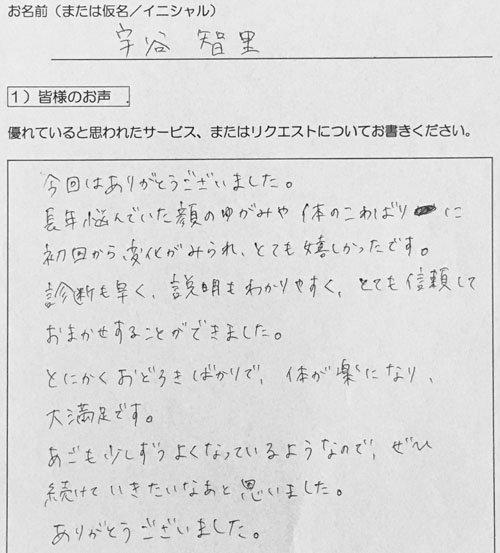 お名前（または仮名／イニシャル）
宇谷 智里
1）皆様のお声
優れていると思われたサービス、またはリクエストについてお書きください。
今回はありがとうございました。
長年悩んでいた顔のゆがみや 体のこわばりに
初回から変化がみられ、とても嬉しかったです。
診断も早く、説明もわかりやすく、とても信頼して
おまかせすることができました。
とにかくおどろきばかりで、体が楽になり、
大満足です。
あごも少しずつよくなっているようなので、ぜひ
続けていきたいなあと思いました。
ありがとうございました。